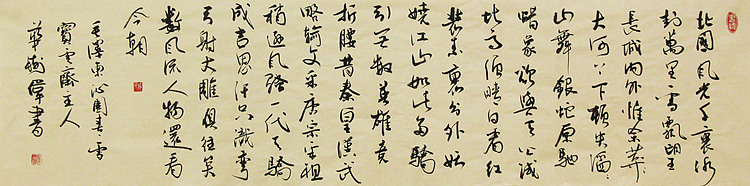 北國風光千里冰
封萬里雪飄望
長城內外惟余莽莽
大河上下頓失滔滔
山舞銀蛇原馳
蠟象欲與天公試
比高須晴日看紅
裝素裹分外妖
嬈江山如此多驕
引無數英雄競
折腰昔秦皇漢武
略輸文采唐宗宋祖
稍遜風騷一代天驕
成吉思汗只識彎
弓射大雕俱往矣
數風流人物還看
今朝
毛澤東沁園春雪
寶雲齋主人
書